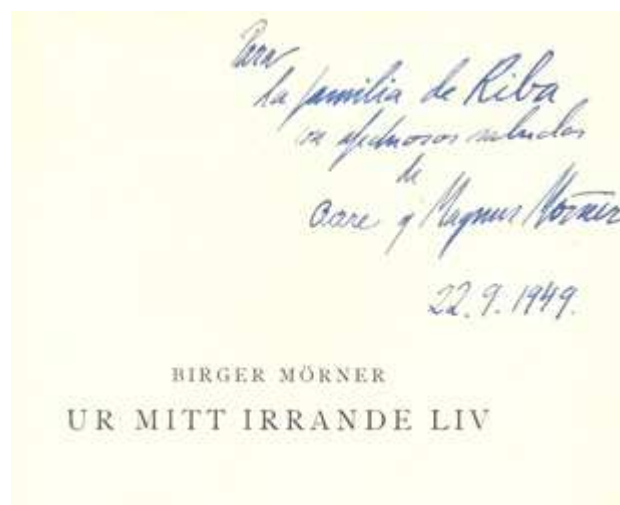 Para
la familia de Riba
con afectuosos saludos
de
Aare y Magnus Mörner
22.9.1949.
BIRGER MÖRNER
UR MITT IRRANDE LIV